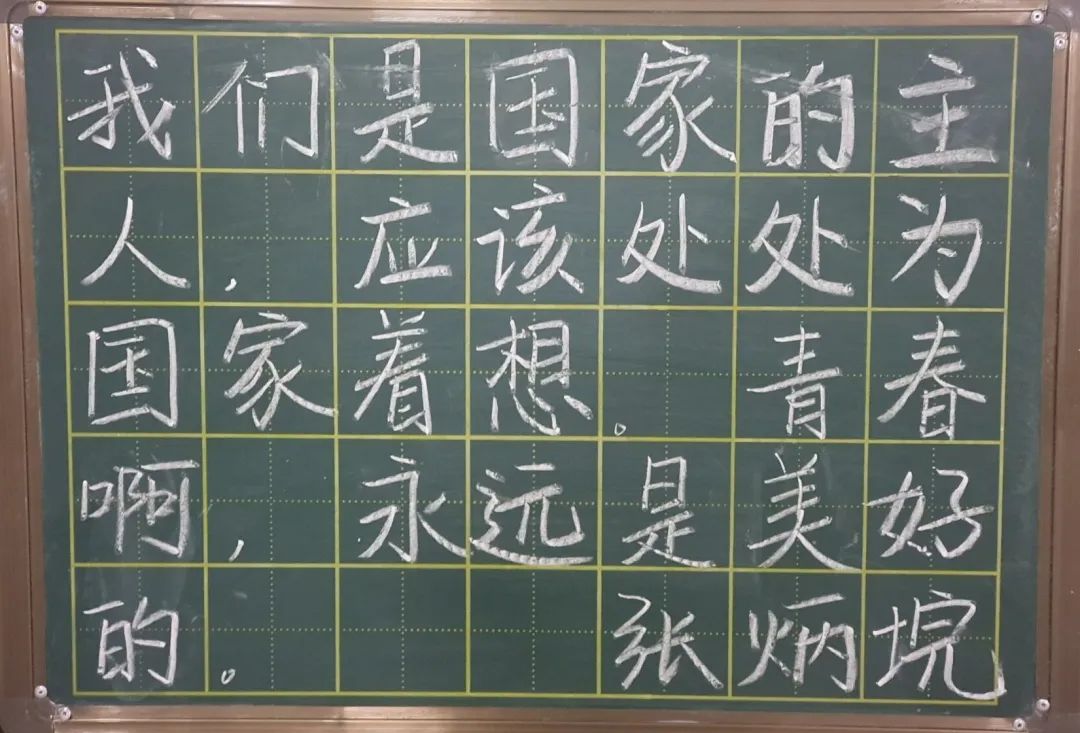 我们是国家的主
人，应该处处为
国家着想。青春
啊，永远是美好
的。张炳垸